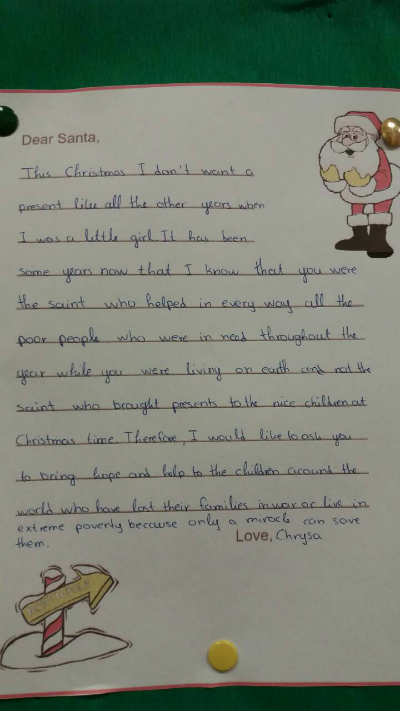 Dear Santa,
This Christmas I don't want a
present like all the other years when
I was a little girl. It has been
some years now that I know that you were
the saint who helped in every way all the
poor people who were in need throughout the
year while you were living on earth and not the
saint who brought presents to the nice children at
Christmas time. Therefore, I would like to ask you
to bring hope and help to the children around the
world who have lost their families in war or live in
extreme poverty because only a miracle can save
them.
Love, Chrysa